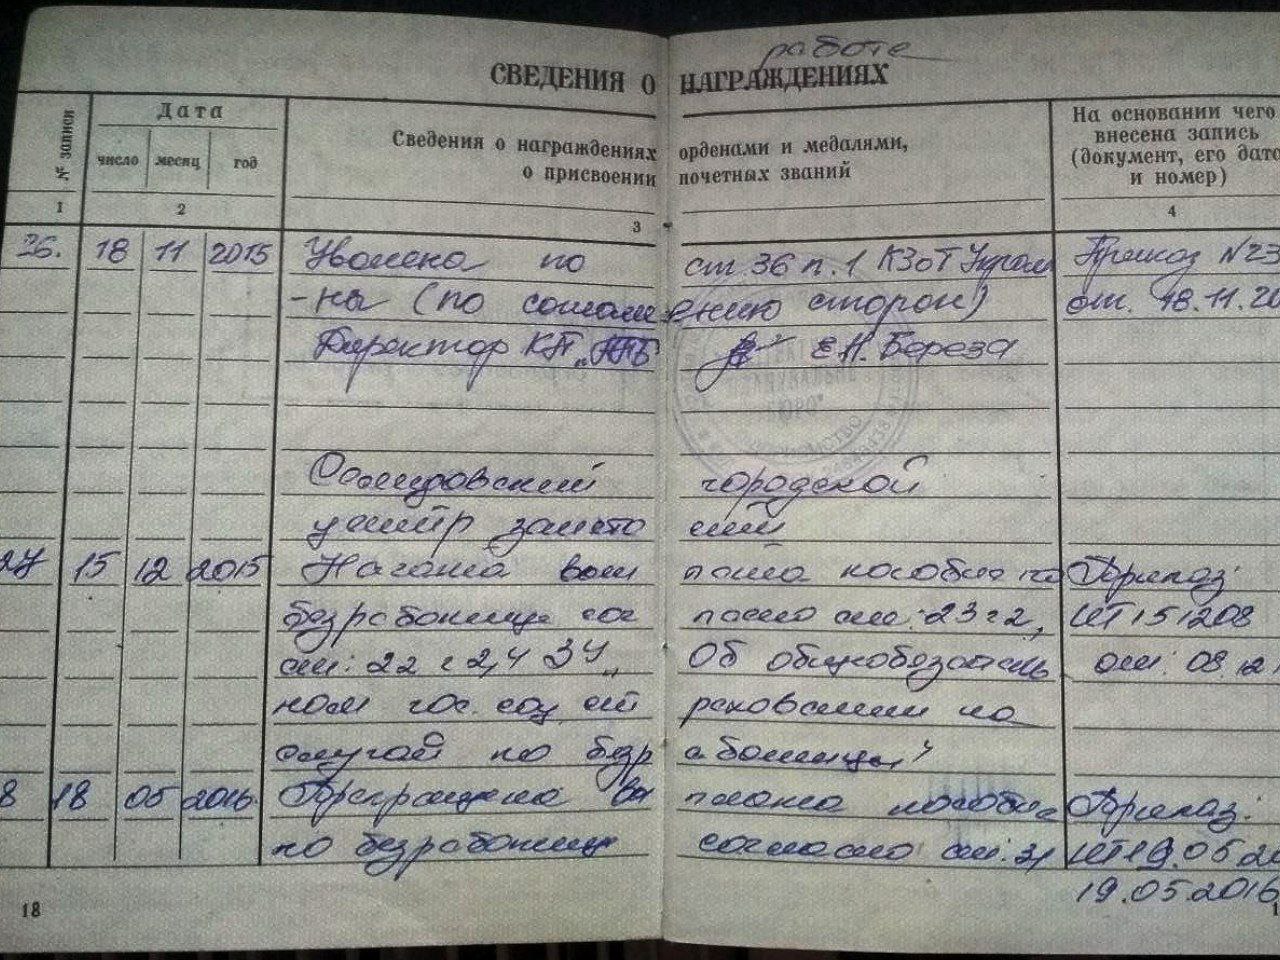 работе
СВЕДЕНИЯ О НАГРАЖДЕНИЯХ
№ записи
Дата
число месяц год
Сведения о награждениях орденами и медалями,
о присвоении почетных званий
На основании чего
внесена запись
(документ, его дата
и номер)
1 2 3 4
26. 18 11 2015 Уволена по ст. 36 п. 1 КЗоТ Украи Приказ №23
-ны (по соглашению сторон) от. 18.11.20
Директор КП Е.Н. Береза
БЮРО"
городской
центр занятости
27 15 12 2015 Начата выплата пособия по Приказ:
безработице согласно ст: 23 п 2, НТ151208
ст: 22 п 2,4 ЗУ „Об общеобязатель от: 08.12
ном гос. соц. ст раховании на
случай по безр аботицы"
8 18 05 2016 Прекращена вы плата пособия Приказ:
по безработице согласно ст: 31 НТ19.05.20
19.05.2016
18
1